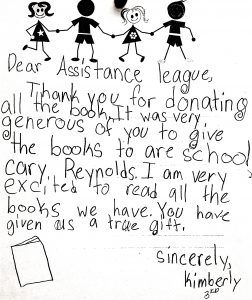 Dear Assistance league,
Thank you for donating
all the book. It was very
generous of you to give
the books to are school
cary, Reynolds. I am very
excited to read all the
books we have. You have
given us a true gift.
sincerely,
Kimberly
3RD